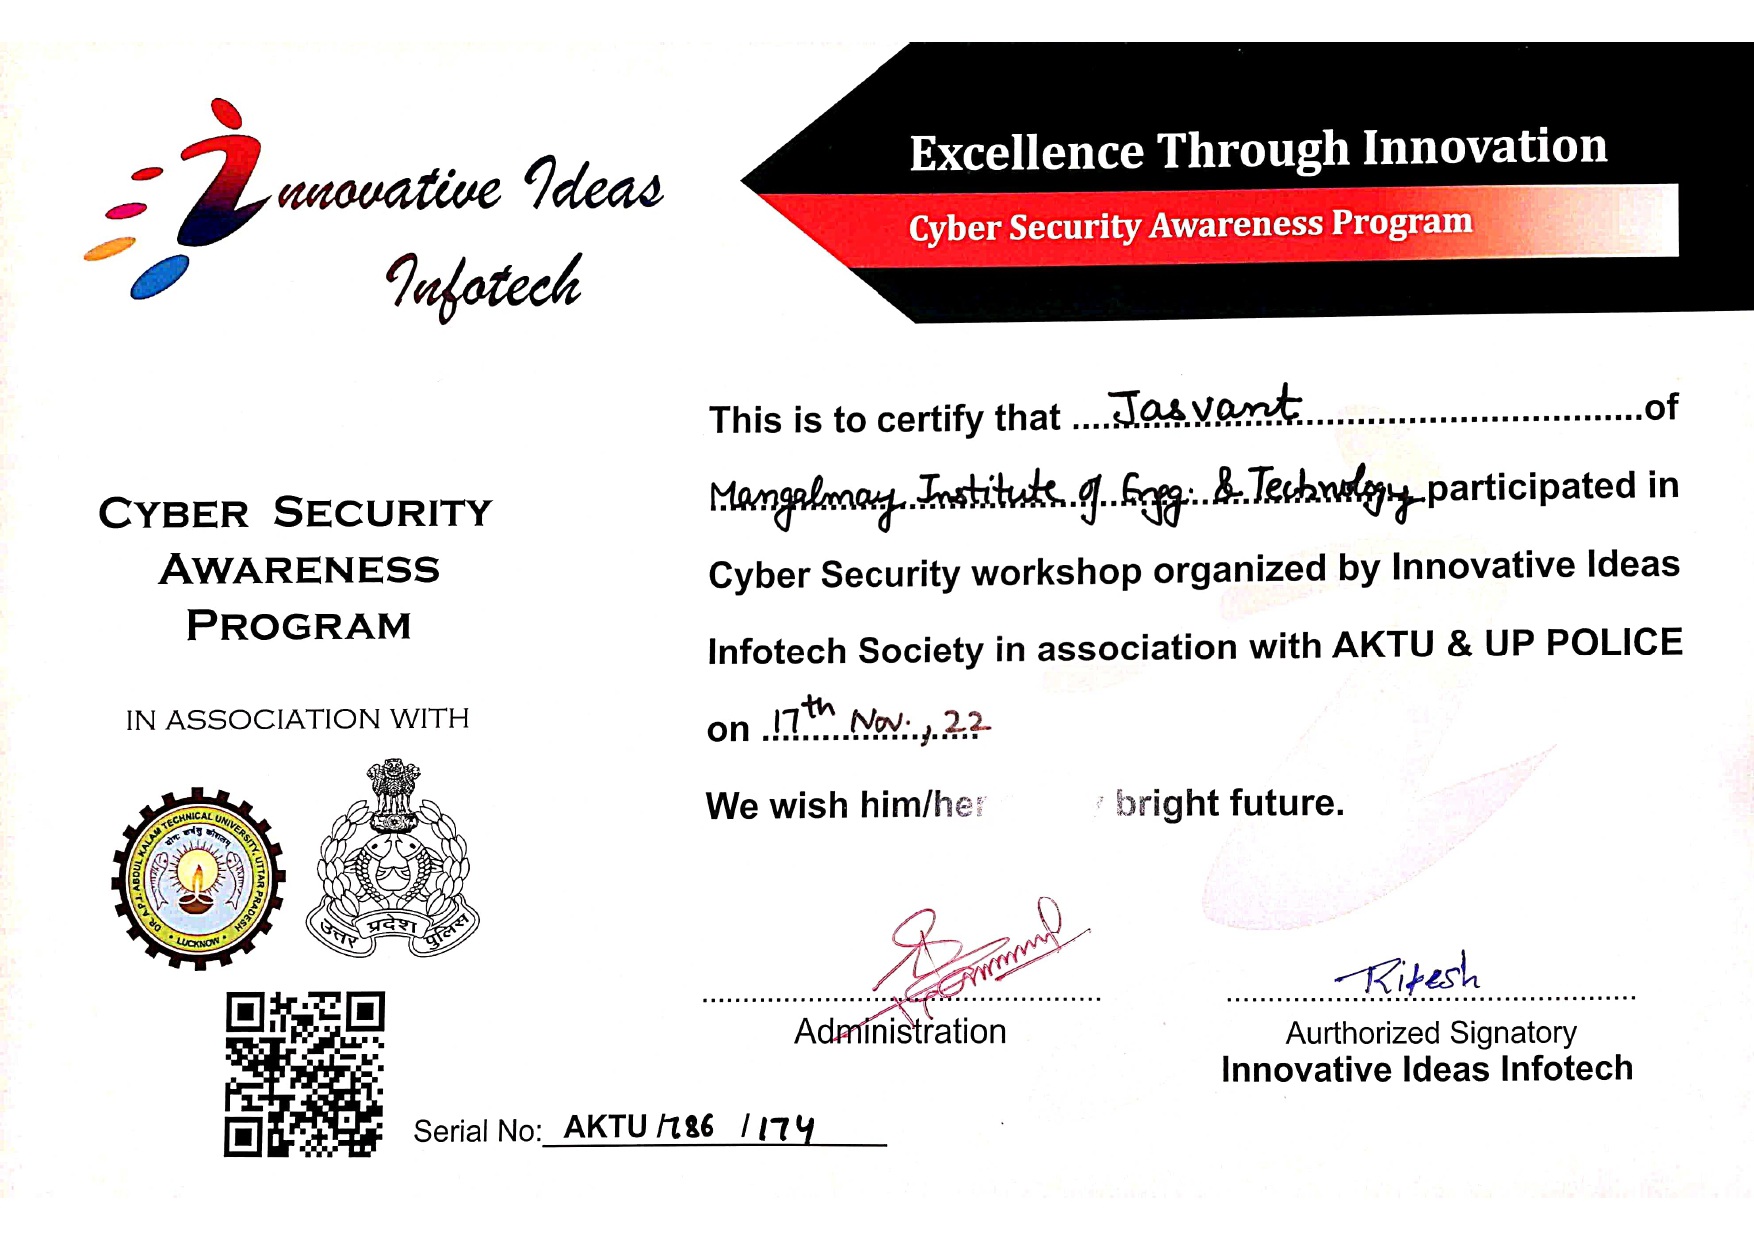 Innovative Ideas
Infotech
Excellence Through Innovation
Cyber Security Awareness Program
CYBER SECURITY
AWARENESS
PROGRAM
IN ASSOCIATION WITH
DR. A.P.J. ABDUL KALAM TECHNICAL UNIVERSITY, UTTAR PRADESH
LUCKNOW
उत्तर प्रदेश पुलिस
This is to certify that ....Jasvant....of
Mangalmay Institute of Engg. & Technology participated in
Cyber Security workshop organized by Innovative Ideas
Infotech Society in association with AKTU & UP POLICE
on 17th Nov., 22
We wish him/her bright future.
Administration
Ritesh
Aurthorized Signatory
Innovative Ideas Infotech
Serial No: AKTU /786 /174